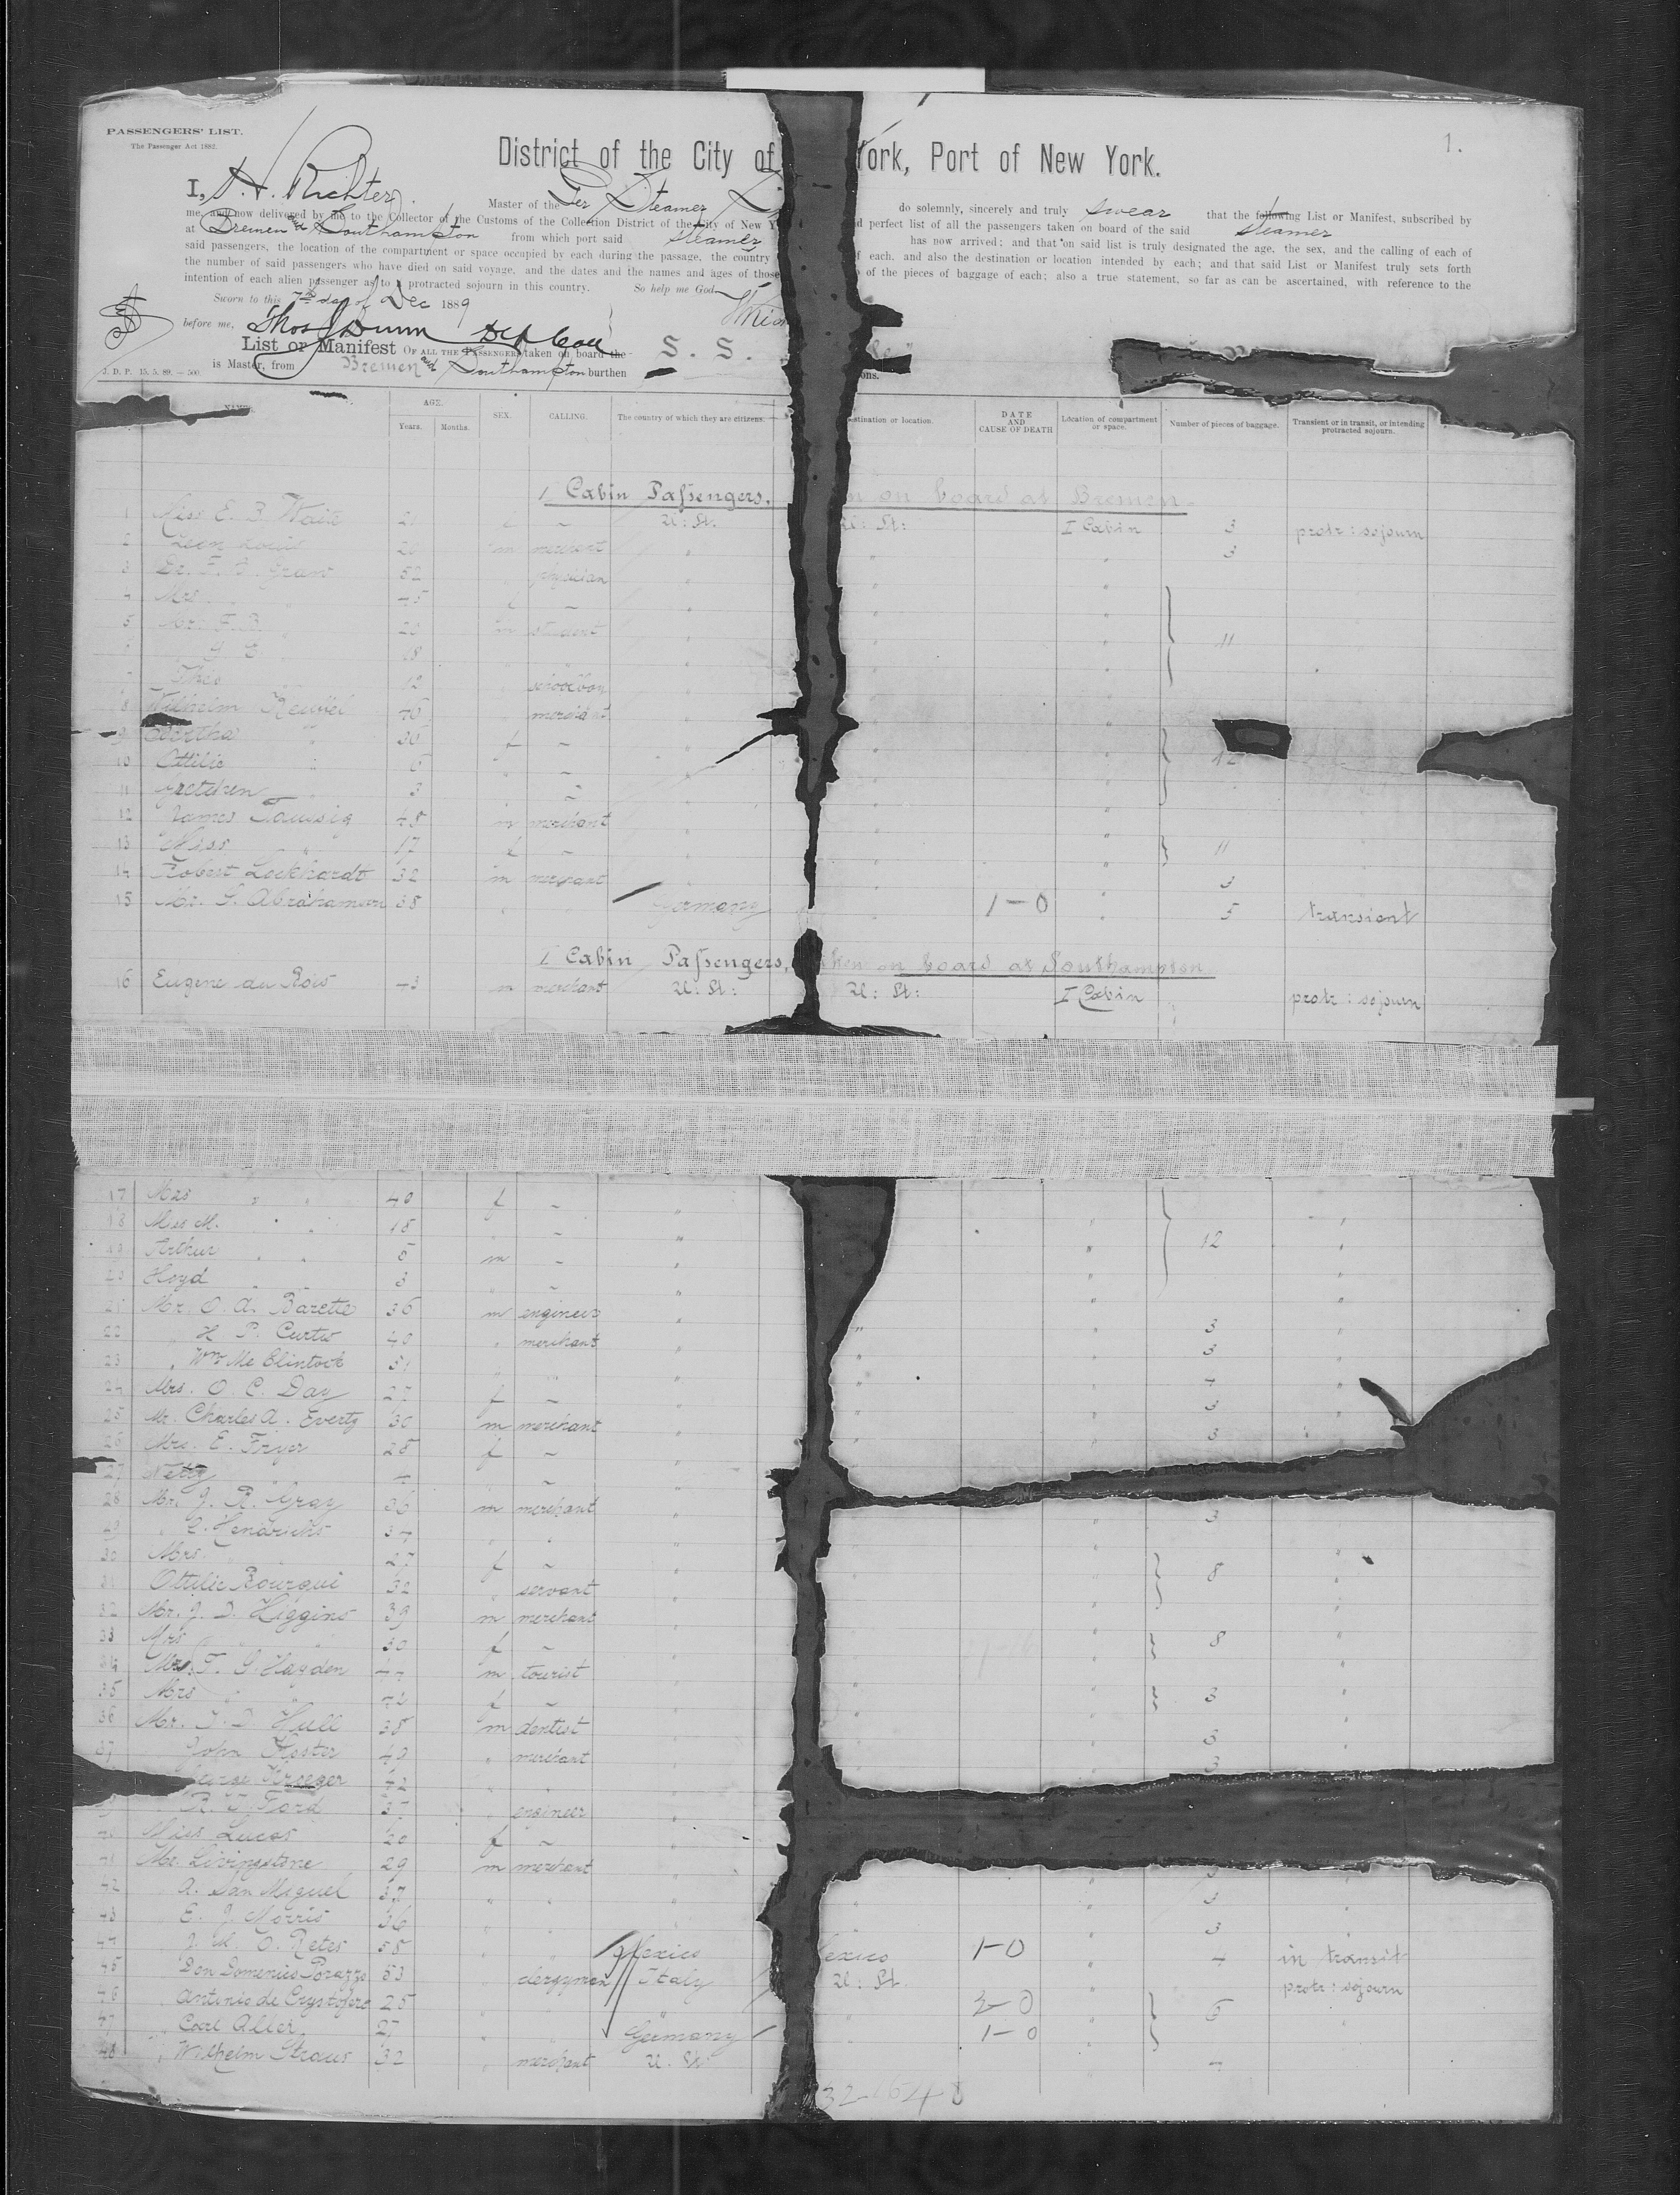 PASSENGERS' LIST.
The Passenger Act 1882.
1.
District of the City of York, Port of New York.
I, Richter Master of the Ger Steamer do solemnly, sincerely and truly swear that the following List or Manifest, subscribed by
me, and now delivered by me to the Collector of the Customs of the Collection District of the City of New perfect list of all the passengers taken on board of the said Steamer
at Bremen and Southampton from which port said Steamer has now arrived; and that on said list is truly designated the age, the sex, and the calling of each of
said passengers, the location of the compartment or space occupied by each during the passage, the country of each, and also the destination or location intended by each; and that said List or Manifest truly sets forth
the number of said passengers who have died on said voyage, and the dates and the names and ages of those of the pieces of baggage of each; also a true statement, so far as can be ascertained, with reference to the
intention of each alien passenger as to a protracted sojourn in this country. So help me God
Sworn to this 7th day of Dec 1889
before me, Thos J Dunn Dep Coll
List or Manifest OF ALL THE PASSENGERS taken on board the S. S.
J. D. P. 15. 5. 89. — 500. is Master, from Bremen and Southampton burthen ons.
NAME. AGE. Years. Months. SEX. CALLING. The country of which they are citizens. stination or location. DATE AND CAUSE OF DEATH Location of compartment or space. Number of pieces of baggage. Transient or in transit, or intending protracted sojourn.
I Cabin Passengers, on board at Bremen.
1 Miss E. B. Waite 21 f ~ U: St: U: St: I Cabin 3 protr: sojourn
2 Leon Louis m merchant " " " 3
3 Dr. F. B. Graw 52 " physician " " "
4 Mrs. " 45 f ~ " " "
5 Mr. F. B. " 20 m student " " " 11
6 G. E. 18 " " " " "
7 Theo 12 schoolboy " "
8 Wilhelm 40 merchant "
9 Bertha " 30 f ~ " " " 12
10 Ottilie " 6 " ~ " "
11 Gretchen 3 ~ " "
12 James Taussig 48 m merchant " " "
13 Miss " 17 f ~ " " " 11
14 Robert Lockhardt 32 m merchant " " 3
15 Mr. S. Abrahamson 38 " " Germany " 1-0 " 5 transient
I Cabin Passengers, taken on board at Southampton
16 Eugene du Bois 43 m merchant U: St: U: St: I Cabin protr: sojourn
17 Mrs " " 40 f ~ "
18 Miss M. " " 18 " ~ " " "
19 Arthur " " 5 m ~ " " 12 "
20 Hoyd " " 3 " ~ " " "
21 Mr. O. A. Barette 36 m engineer " " "
22 " H. P. Curtis 40 " merchant " " " 3 "
23 " Wm Mc Clintock 31 " " " " " 3 "
24 Mrs. O. C. Day 27 f ~ " " " 4 "
25 Mr. Charles A. Evertz 30 m merchant " " " 3 "
26 Mrs. E. Fryer 28 f ~ " " " 3
27 Netty ~ "
28 Mr. J. R. Gray 36 m merchant " " 3
29 " Hendrichs 37 " " " "
30 Mrs. " 27 f ~ " " 8 "
31 Ottilie Bourqui 32 " servant " " "
32 Mr. J. D. Higgins 39 m merchant " " "
33 Mrs " 30 f ~ " " 8 "
34 Mr. T. G. Hayden m tourist " " "
35 Mrs " " 42 f ~ " " 3 "
36 Mr. Hull 38 m dentist " " "
37 John 40 " merchant " " 3 "
George Kroeger 42 " " " 3
Ford 37 " engineer "
40 Miss Lucas 20 f ~ "
41 Mr. Livingstone 29 m merchant " 3
42 " A. San Miguel 37 " " " " 3 "
43 " E. J. Morris 36 " " " " " 3 "
44 " J. M. O. Retes 58 " " Mexico exico 1-0 " 4 in transit
45 " Don Domenico Porazzo 53 " clergyman Italy U: St. " protr: sojourn
46 " Antonio de Crystofero 25 " " " 2-0 " 6
47 " Carl Aller 27 " " Germany " 1-0 "
48 " Wilhelm Straus 32 " merchant U: St: 4